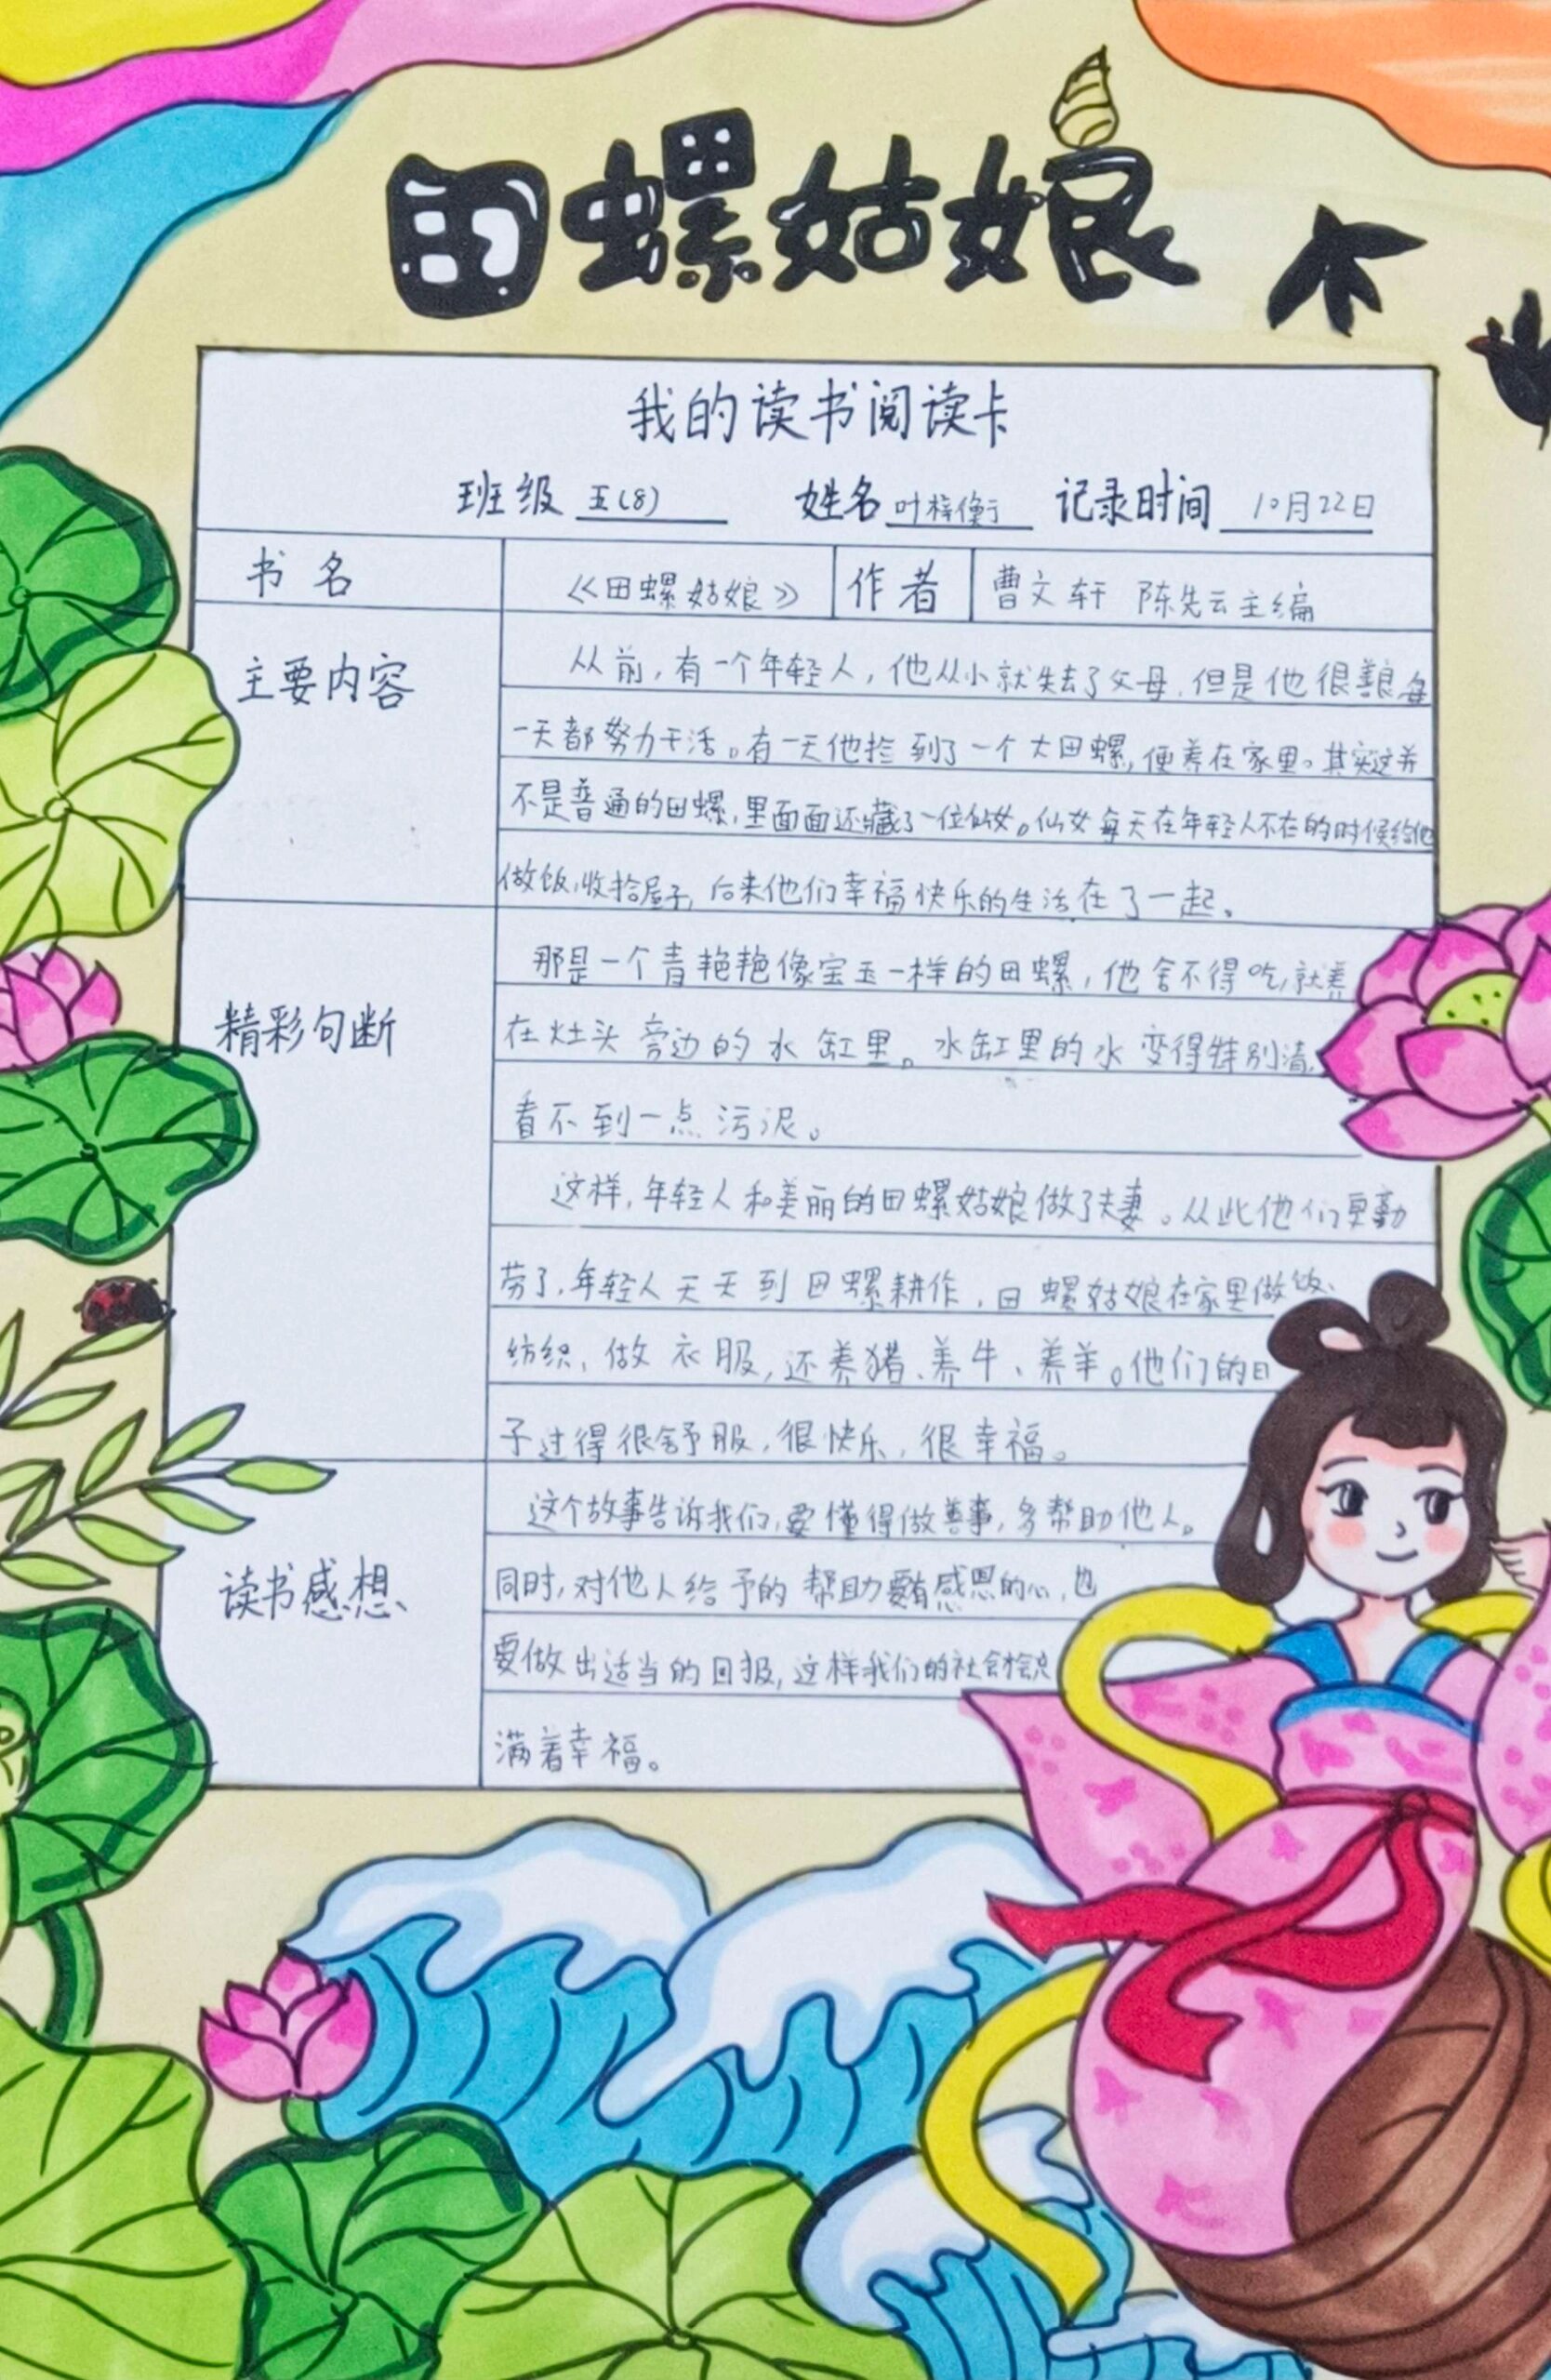 田螺姑娘
我的读书阅读卡
班级 五(8) 姓名 叶梓衡 记录时间 10月22日
书名 《田螺姑娘》 作者 曹文轩 陈先云主编
主要内容
从前,有一个年轻人,他从小就失去了父母,但是他很善良,每
一天都努力干活。有一天他捡到了一个大田螺,便养在家里。其实这并
不是普通的田螺,里面面还藏了一位仙女。仙女每天在年轻人不在的时候给他
做饭,收拾屋子,后来他们幸福快乐的生活在了一起。
精彩句断
那是一个青艳艳像宝玉一样的田螺,他舍不得吃,就养
在灶头旁边的水缸里。水缸里的水变得特别清,
看不到一点污泥。
这样,年轻人和美丽的田螺姑娘做了夫妻。从此他们更勤
劳了,年轻人天天到田螺耕作,田螺姑娘在家里做饭、
纺织、做衣服,还养猪、养牛、养羊。他们的日
子过得很舒服,很快乐,很幸福。
读书感想
这个故事告诉我们,要懂得做善事,多帮助他人。
同时,对他人给予的帮助要有感恩的心,也
要做出适当的回报,这样我们的社会才会
满着幸福。